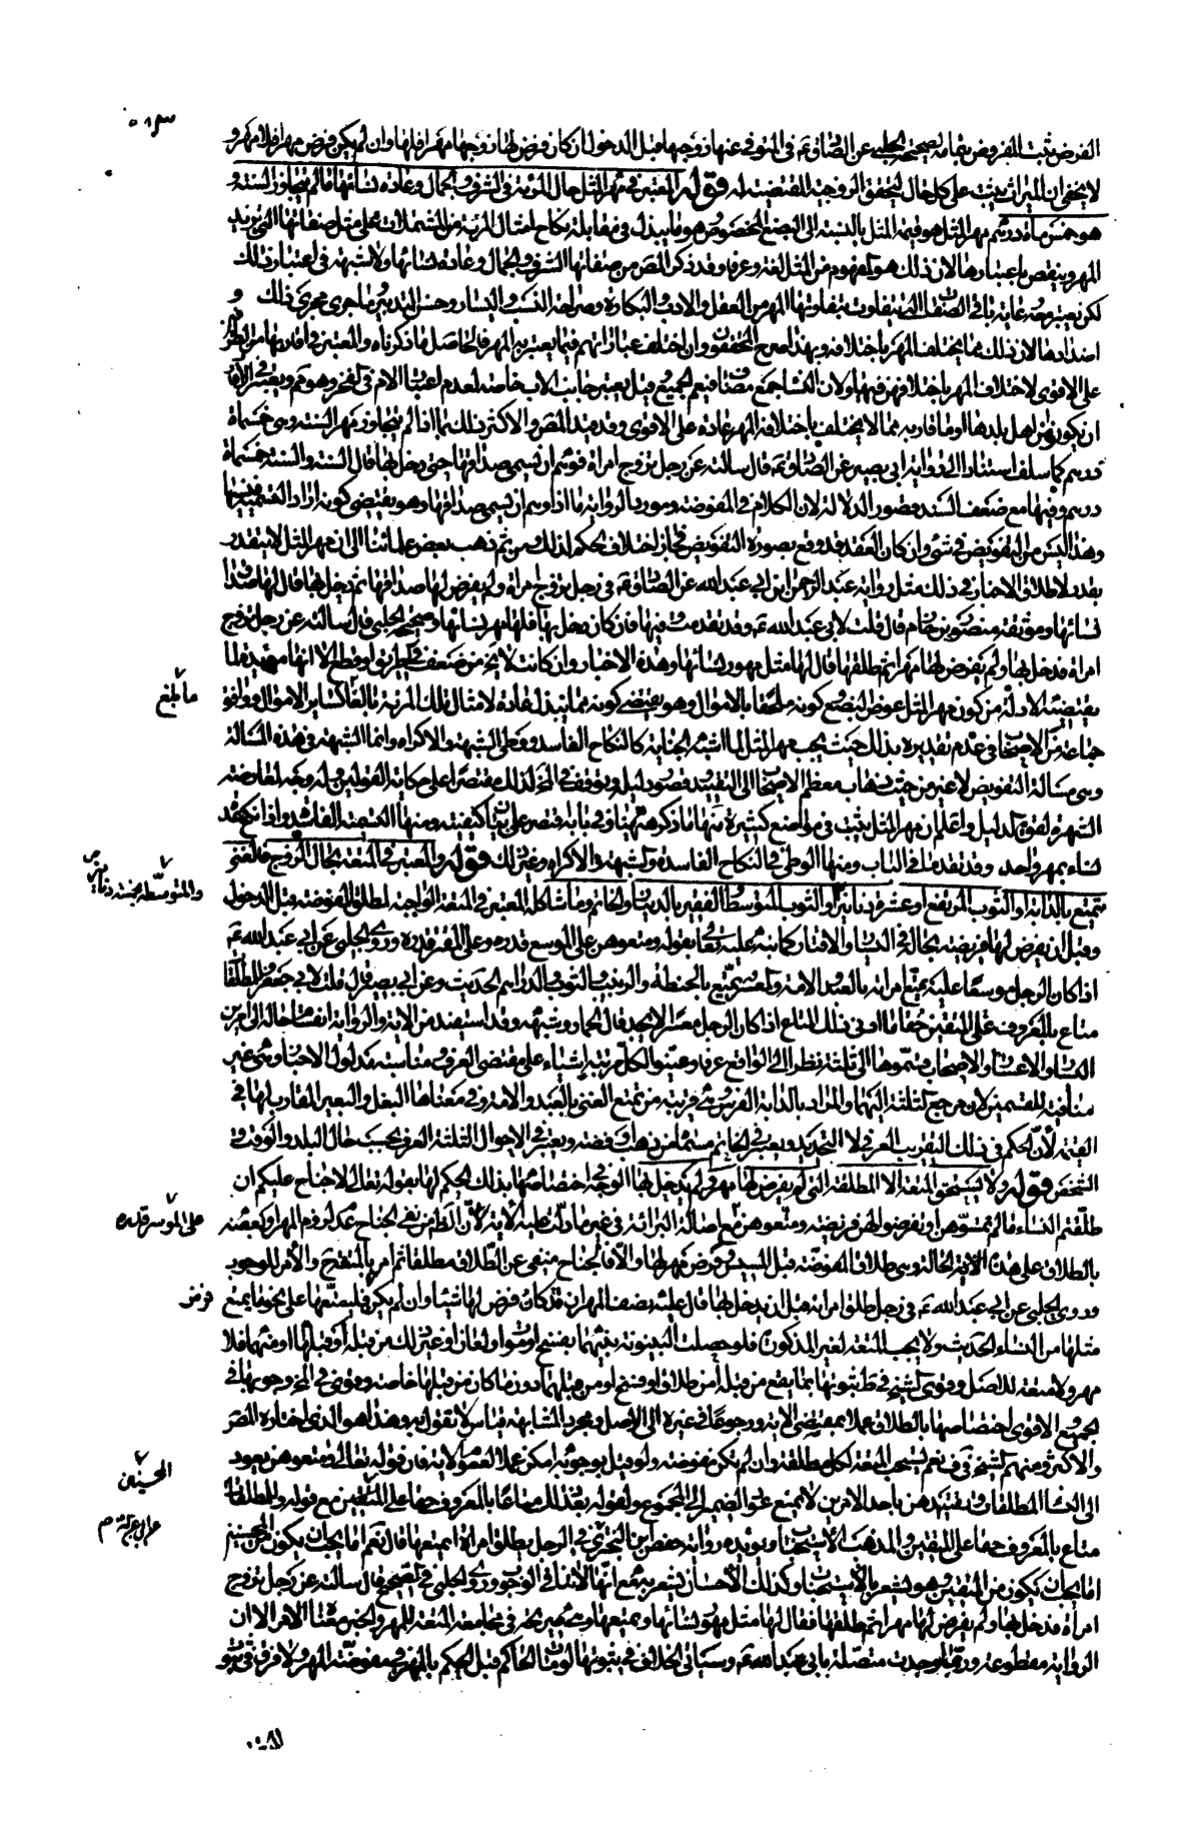 الفرض ثبت المفروض بتمامه لصحيحة الحلبي عن الصادق عم في المتوفى عنها زوجها قبل الدخول ان كان فرض لها زوجها مهرا فلها وان لم يكن فرض مهرا فلا مهر و
لا يخفى ان الميراث يثبت على كل حال لتحقق الزوجية المقتضية له قوله المعتبر في مهر المثل حال المرئة في الشرف والجمال وعادة نسائها ما لم يتجاوز السنة و
هو خمس مأة درهم مهر المثل هو قيمة المثل بالنسبة الى البضع المخصوص هو ما يبذل في مقابلة نكاح امثال المرئة من المشتملات على مثل صفاتها التي يزيد
المهر وينقص باعتبارها لان ذلك هو المفهوم من المثل لغة وعرفا وقد ذكر المص من صفاتها الشرف والجمال وعادة نسائها ولا شبهة في اعتبار ذلك
لكن يعتبر معه غايته باقي الصفات التي يتفاوت بتفاوتها المهر من العقل والادب والبكارة وصراحة النسب واليسار وحسن التدبير وما جرى مجرى ذلك و
اضدادها لان ذلك مما يختلف المهر باختلافه وبهذا صرح المحققون وان اختلف عباراتهم فيما يعتبر به المهر فالحاصل ما ذكرناه والمعتبر في اقاربها من الطرفين
على الاقوى لاختلاف المهر باختلافهن فيهما ولان النساء جمع مضاف فيعم الجميع وقيل يعتبر جانب الاب خاصة لعدم اعتبار الام في الفخر وهو مم ويعتبر في الاقارب
ان يكون من اهل بلدها او ما قاربه مما لا يختلف باختلافه المهر عادة على الاقوى وقد قيد المص والاكثر ذلك بما اذا لم يتجاوز مهر السنة وهي خمسمأة
درهم كما سلف استنادا الى رواية ابي بصير عن الصادق عم قال سالته عن رجل تزوج امراة فوهم ان يسمى صداقها حتى دخل بها قال السنة والسنة خمسمأة
درهم وفيها مع ضعف السند قصور الدلالة لان الكلام في المفوضة ومورد الرواية ما اذا وهم ان يسمى صداقها وهو يقتضي كونه اراد التسمية فنسيها
وهذا ليس من التفويض في شئ وان كان العقد قد وقع بصورة التفويض فجاز اختلاف الحكم لذلك ومن ثم ذهب بعض علمائنا الى ان مهر المثل لا يتقدر
بقدر لاطلاق الاخبار في ذلك مثل رواية عبد الرحمن ابن ابي عبد الله عن الصادق عم في رجل تزوج امراة ولم يفرض لها صداقها ثم دخل بها قال لها صداق
نسائها وموثقة منصور بن حازم قال قلت لابي عبد الله عم وقد تقدمت وفيها فان كان دخل بها فلها مهر نسائها وصحيحة الحلبي قال سالته عن رجل تزوج
امراة فدخل بها ولم يفرض لها مهرا ثم طلقها قال لها مثل مهور نسائها وهذه الاخبار وان كانت لا يخ من ضعف في طريق او قطع الا انها مؤيدة لما
يقتضيه الادلة من كون مهر المثل عوض البضع كونه ملحقا بالاموال وهو يقتضي كونه مما يبذل عادة لامثال تلك المرئة بالغا كساير الاموال ووافق
جماعة من الاصحاب في عدم تقديره بذلك حيث يجب مهر المثل لما اشبه الجناية كالنكاح الفاسد ووطى الشبهة والاكراه وانما الشبهة في هذه المسالة
وهي مسالة التفويض لا غير من حيث ذهاب معظم الاصحاب الى التقييد وقصور دليله وتوقف في المخ لذلك مقتصرا على حكاية القولين وله وجه لمعارضة
الشهرة لقوة الدليل واعلم ان مهر المثل يثبت في مواضع كثيرة منها ما ذكر هنا وفي بابه قصر على بيان كيفيته ومنها التسمية الفاسدة واذا نكح عدة
نساء بمهر واحد وقد تقدما في الباب ومنها الوطى في النكاح الفاسد والشبهة والاكراه وغير ذلك قوله والمعتبر في المتعة بحال الزوج فالغني
يتمتع بالدابة او الثوب المرتفع او عشرة دنانير او الثوب المتوسط والفقير بالدينار والخاتم وما شاكله المعتبر في المتعة الواجبة لمطلق المفوضة قبل الدخول
وقبل ان يفرض لها فريضة بحاله في اليسار والاقتار كما نبه عليه تعالى بقوله ومتعوهن على الموسع قدره وعلى المقتر قدره وروى الحلبي عن ابي عبد الله عم
اذا كان الرجل موسعا عليه يمتع امراته بالعبد والامة والمعسر يمتع بالحنطة والزبيب والثوب والدراهم الحديث وعن ابي بصير قال قلت لابي جعفر وللمطلقات
متاع بالمعروف حقا على المتقين ما ادنى ذلك المتاع اذا كان الرجل معسرا لا يجد قال الخمار وشبهه وقد استفيد من الاية والرواية انقسام حاله الى امرين
اليسار والاعسار والاصحاب قسموها الى ثلثة نظرا الى الواقع عرفا وعينوا لكل مرتبة اشياء على مقتضى العرف مناسبة لمدلول الاخبار وهي غير
منافية للقسمين لان مرجع الثلثة اليهما والمراد بالدابة الفرس وهي قريبة من تمتع الغني بالعبد والامة وفي معناها البغل والبعير المقارب لها في
القيمة لان الحكم في ذلك التقريب العرفي لا التحديد ويعتبر في الخاتم مسماه من ذهب وفضة ويعتبر في الاحوال الثلثة العرف بحسب حال البلد والوقت و
الشخص قوله ولا يستحق المتعة الا المطلقة التي لم يفرض لها مهر ولم يدخل بها الوجه في اختصاصها بذلك الحكم لها بقوله تعالى لا جناح عليكم ان
طلقتم النساء ما لم تمسوهن او تفرضوا لهن فريضة ومتعوهن مع اصالة البرائة في غير ما دلت عليه الاية لان الظ من نفي الجناح عدم لزوم المهر او بعضه
بالطلاق على هذه الحالة وهي طلاق المفوضة قبل المسيس وفرض مهر لها والا فالجناح منفي عن الطلاق مطلقا ثم امر بالمتعة والامر للوجوب
وروى الحلبي عن ابي عبد الله عم في رجل طلق امراته قبل ان يدخل بها قال عليه نصف المهر ان كان فرض لها شيئا وان لم يكن فليمتعها على نحو ما يمتع
مثلها من النساء الحديث ولا يجب المتعة لغير المذكور فلو حصلت البينونة بينهما بفسخ او موت او لعان او غير ذلك من قبله او قبلها او منهما فلا
مهر ولا متعة للاصل وقوى الشيخ في ط ثبوتها بما يقع من قبله من طلاق او فسخ او من قبلهما دون ما كان من قبلها خاصة وقوى في المخ وجوبها في
الجميع الاقوى اختصاصها بالطلاق عملا بمقتضى الاية ورجوعا في غيره الى الاصل ومجرد المشابهة قياس لا نقول به وهذا هو الذي اختاره المص
والاكثر ومنهم الشيخ في ف نعم يستحب المتعة لكل مطلقة وان لم تكن مفوضة ولو قيل بوجوبه امكن عملا بعموم الاية فان قوله تعالى ومتعوهن يعود
الى النساء المطلقات وتقييدهن باحد الامرين لا يمنع عود الضمير الى المجموع ولقوله بعد ذلك متاعا بالمعروف حقا على المتقين مع قوله وللمطلقات
متاع بالمعروف حقا على المتقين والمذهب الاستحباب ويؤيده رواية حفص بن البختري في الرجل يطلق امراة ايمتعها قال نعم اما يحب ان يكون من المحسنين
اما يحب ان يكون من المتقين وهو يشعر بالاستحباب وكذلك الاحسان يشعر به مع انها لا تنافي الوجوب وروى الحلبي في الصحيح قال سالته عن رجل تزوج
امراة فدخل بها ولم يفرض لها مهرا ثم طلقها فقال لها مثل مهور نسائها ويمتعها وهي صريحة في مجامعة المتعة للمهر والخبر هنا الامر الا ان
الرواية مقطوعة وربما وجدت متصلة بابي عبد الله عم وسياتي الخلاف في ثبوتها لو مات الحاكم قبل الحكم بالمهر في مفوضة المهر ولا فرق في ثبو
ما بلغ
والمتوسط بخمسة دنانير
على الموسر قدره
فرض
المحسنين